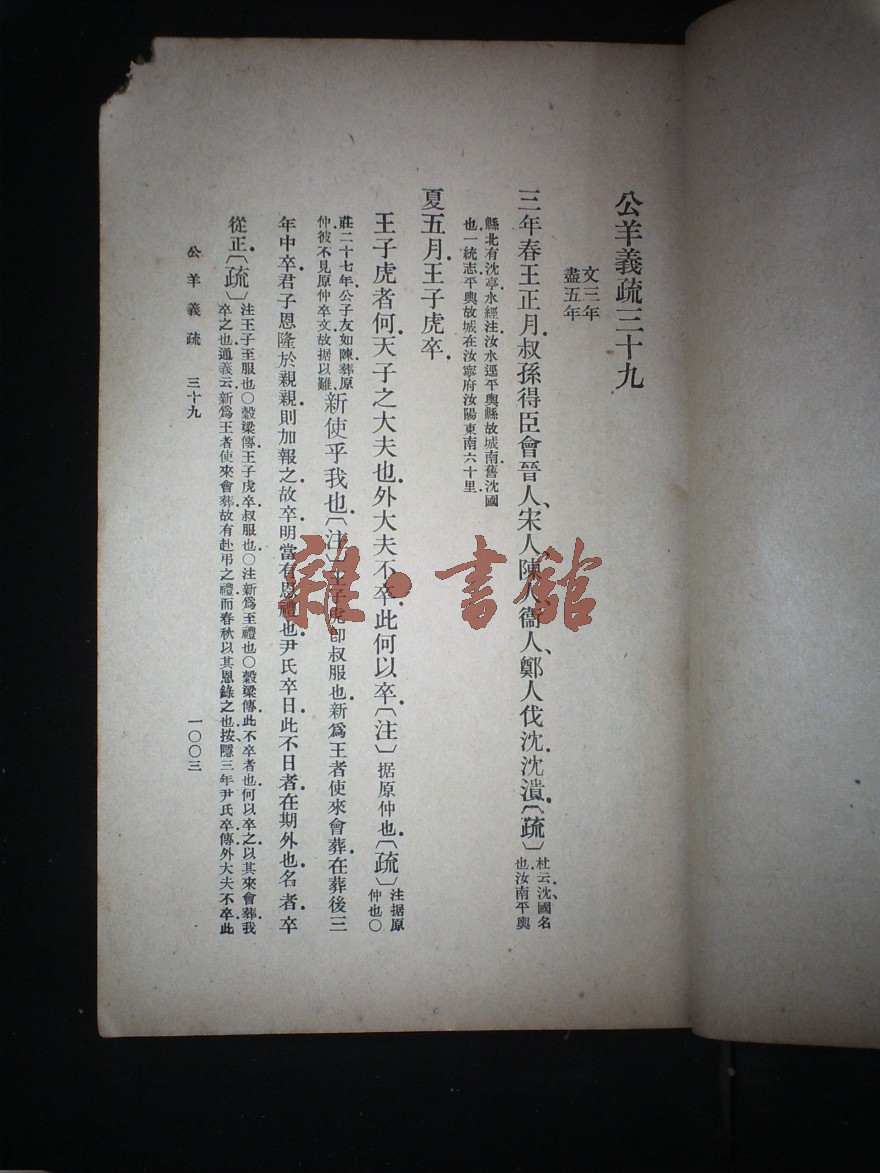 公羊義疏三十九
文三年
盡五年
三年春王正月.叔孫得臣會晉人、宋人、陳人、衞人、鄭人伐沈.沈潰.〔疏〕
杜云.沈、國名
也.汝南平輿
縣北有沈亭.水經注.汝水逕平輿縣故城南.舊沈國
也.一統志.平輿故城在汝寧府汝陽東南六十里.
夏五月.王子虎卒.
王子虎者何.天子之大夫也.外大夫不卒.此何以卒.〔注〕据原仲也.〔疏〕
注据原
仲也○
莊二十七年.公子友如陳.葬原
仲.彼不見原仲卒文.故据以難.
新使乎我也.〔注〕王子虎卽叔服也.新爲王者使來會葬.在葬後三
年中卒.君子恩隆於親親.則加報之.故卒.明當有恩禮也.尹氏卒日.此不日者.在期外也.名者.卒
從正.〔疏〕
注王子至服也○穀梁傳.王子虎卒.叔服也.○注新爲至禮也○穀梁傳.此不卒者也.何以卒之.以其來會葬.我
卒之也.通義云.新爲王者使來會葬.故有赴弔之禮.而春秋以其恩錄之也.按、隱三年尹氏卒.傳.外大夫不卒.此
公羊義疏 三十九
一〇〇三
雜·書館